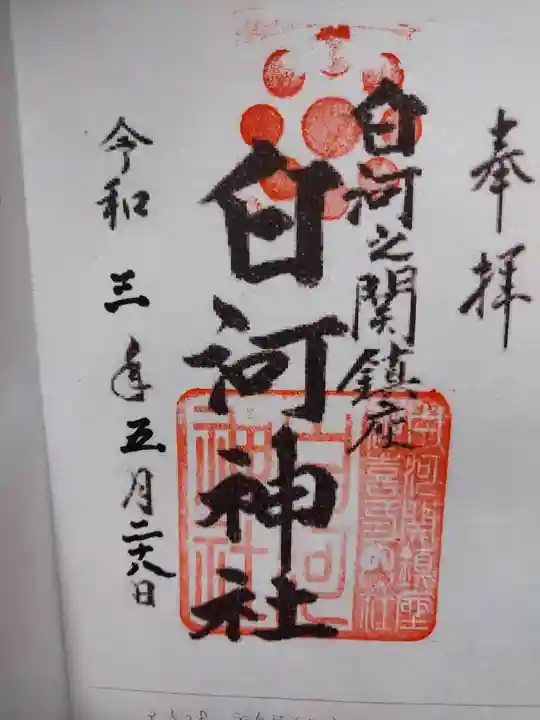 奉拝
白河之関鎮座
白河神社
令和三年五月二十八日
白河関鎮座
延喜式内社
白河
神社